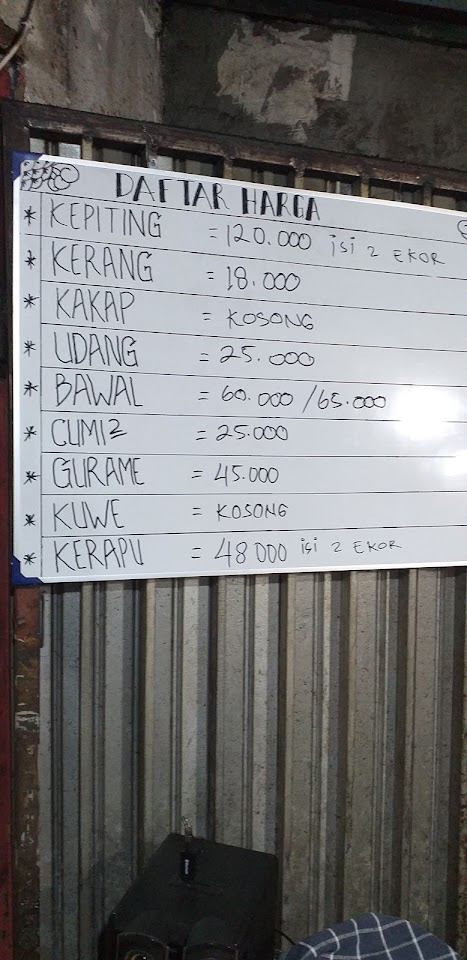 DAFTAR HARGA
* KEPITING = 120.000 isi 2 EKOR
* KERANG = 18.000
* KAKAP = KOSONG
* UDANG = 25.000
* BAWAL = 60.000 / 65.000
* CUMI2 = 25.000
* GURAME = 45.000
* KUWE = KOSONG
* KERAPU = 48 000 isi 2 EKOR